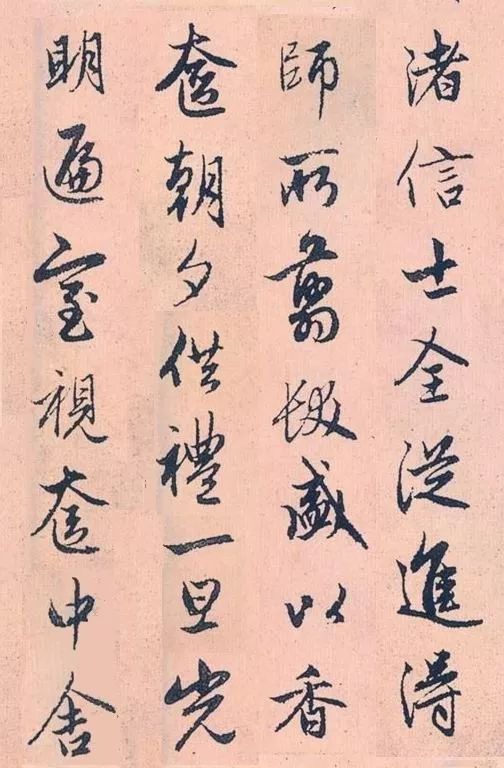 渚信士全從進得
師所剪髮盛以香
奩朝夕供禮一旦光
明遍室視奩中舍